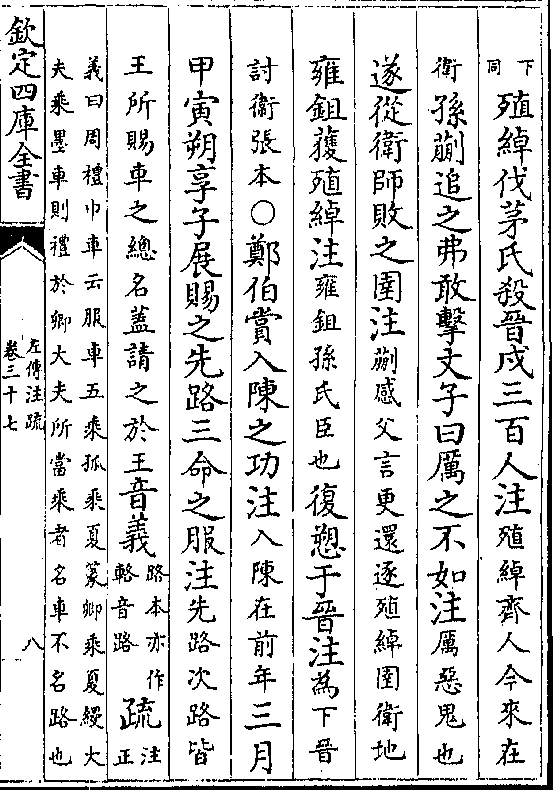 下同
殖綽伐茅氏殺晉戍三百人注殖綽齊人今來在
衛孫蒯追之弗敢擊文子曰厲之不如注厲惡鬼也
遂從衛師敗之圉注蒯感父言更還逐殖綽圉衛地
雍鉏獲殖綽注雍鉏孫氏臣也復愬于晉注為下晉
討衛張本○鄭伯賞入陳之功注入陳在前年三月
甲寅朔享子展賜之先路三命之服注先路次路皆
王所賜車之總名蓋請之於王音義路本亦作輅音路疏注正
義曰周禮巾車云服車五乘孤乘夏篆卿乘夏縵大
夫乘墨車則禮於卿大夫所當乘者名車不名路也
欽定四庫全書
左傳注疏
卷三十七
八